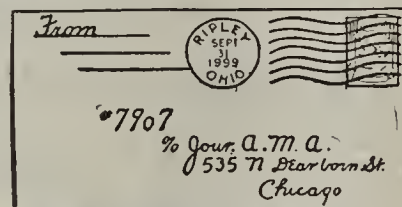 From
RIPLEY
SEPT
31
1999
OHIO
#7907
% Jour. A.M.A.
535 N Dearborn St.
Chicago